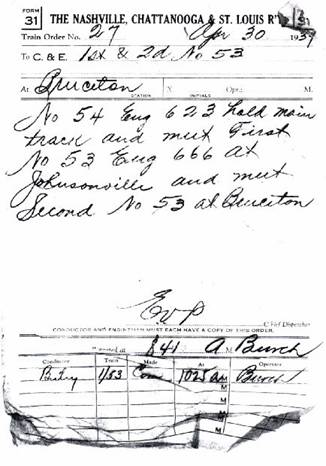 FORM 31 THE NASHVILLE, CHATTANOOGA & ST. LOUIS R'Y 31
Train Order No. 27 Apr 30 193
To C. & E. 1st & 2d No 53
At Bruceton X Opr. M.
STATION INITIALS
No 54 Eng 623 hold main
track and meet First
No 53 Eng 666 at
Johnsonville and meet
Second No 53 at Bruceton
Chief Dispatcher
CONDUCTOR AND ENGINEMEN MUST EACH HAVE A COPY OF THIS ORDER.
at 841 A M Burch
Conductor Train Made At Operator
1/53 Com 1025 am Burch
M
M
M
M